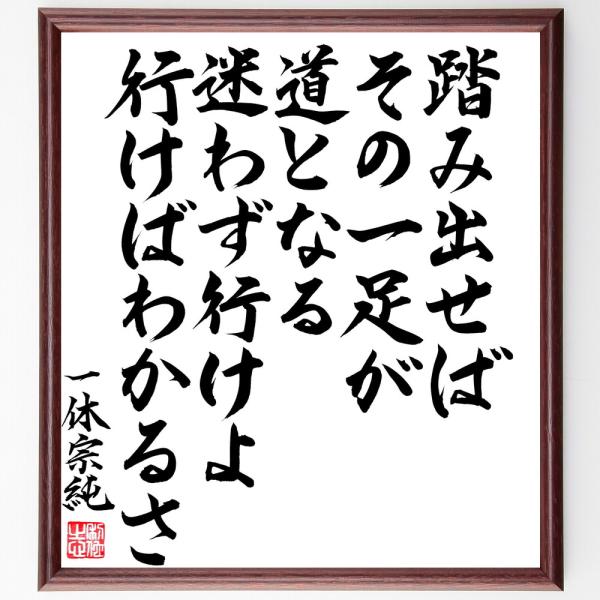 踏み出せば
その一足が
道となる
迷わず行けよ
行けばわかるさ
一休宗純